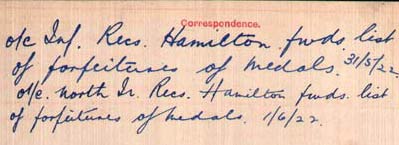 Correspondence.
o/c Inf. Recs. Hamilton fwds. list
of forfeitures of medals. 31/5/22.
o/c. North Ir. Recs. Hamilton fwds. list
of forfeitures of medals. 1/6/22.